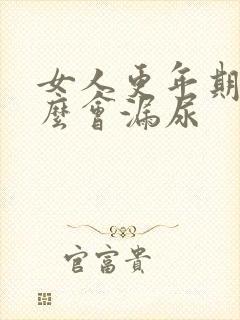 女人更年期
麼會漏尿
官富貴